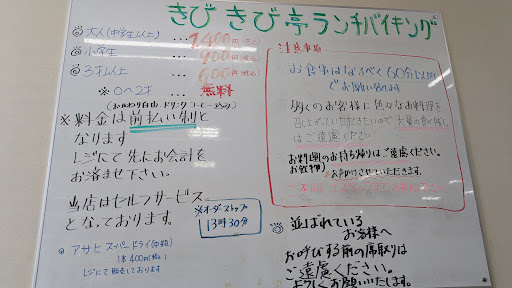 きび きび 亭 ランチバイキング
◎ 大人(中学生以上) ... 1,400円(税込)
◎ 小学生 ... 900円(税込)
◎ 3才以上 ... 600円(税込)
※ 0〜2才 無料
※料金は前払い制と
なります
レジにて先にお会計を
お済ませ下さい。
当店はセルフサービス
となっております。
※オーダーストップ
13時30分
◎ アサヒスーパードライ(中瓶)
1本400円(税込)
レジにて販売しております
注意事項
お食事はなるべく60分以内
でお願い致します
多くのお客様に色々なお料理を
召し上がっていただきたいので大量の食べ残し
はご遠慮ください!
お料理のお持ち帰りはご遠慮ください。
◎ 並ばれている
お客様へ
お呼びする前の席取りは
ご遠慮ください。
よろしくお願いいたします。